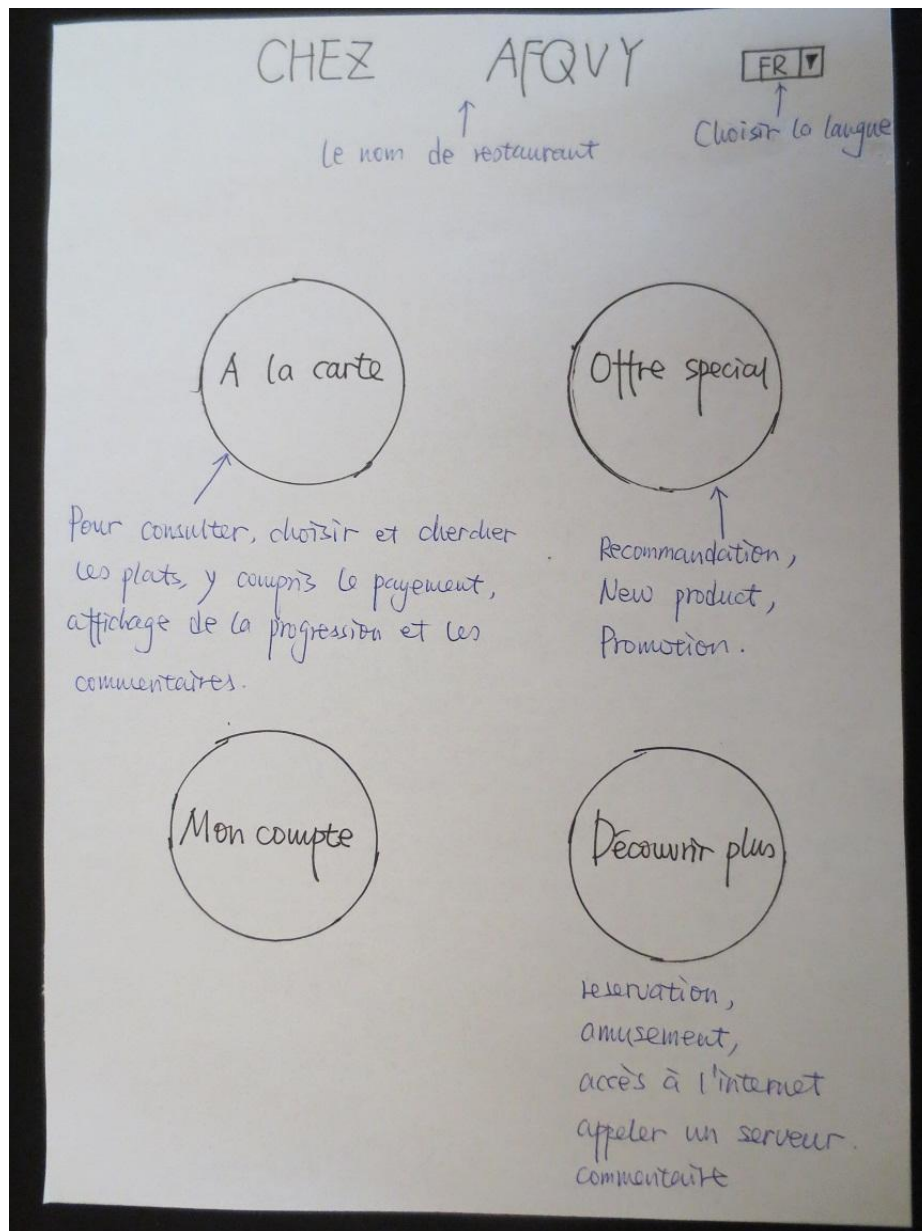 CHEZ AFQVY FR
le nom de restaurant
Choisir la langue
A la carte
Offre special
Pour consulter, choisir et chercher
les plats, y compris le payement,
affichage de la progression et les
commentaires.
Recommandation,
New product,
Promotion.
Mon compte
Découvrir plus
reservation,
amusement,
accès à l'internet
appeler un serveur.
commentaire